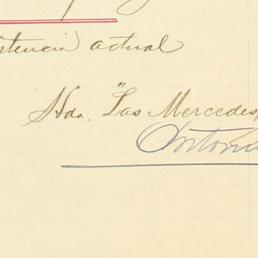 actual
Hda. "Las Mercedes,
Antonio